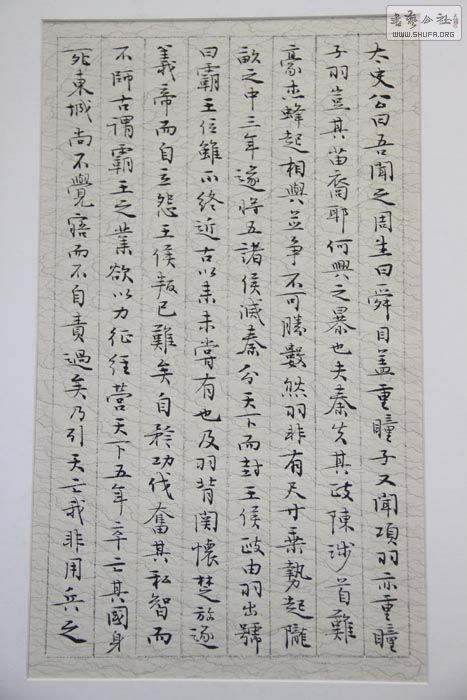 書藝公社
WWW.SHUFA.ORG
太史公曰吾聞之周生曰舜目蓋重瞳子又聞項羽亦重瞳
子羽豈其苗裔耶何興之暴也夫秦失其政陳涉首難
豪杰蜂起相與並争不可勝數然羽非有尺寸乘勢起隴
畝之中三年遂將五諸侯滅秦分天下而封王侯政由羽出號
曰霸王位雖不終近古以來未嘗有也及羽背關懷楚放逐
義帝而自立怨王侯叛己難矣自矜功伐奮其私智而
不師古謂霸王之業欲以力征經營天下五年卒亡其國身
死東城尚不覺寤而不自責過矣乃引天亡我非用兵之